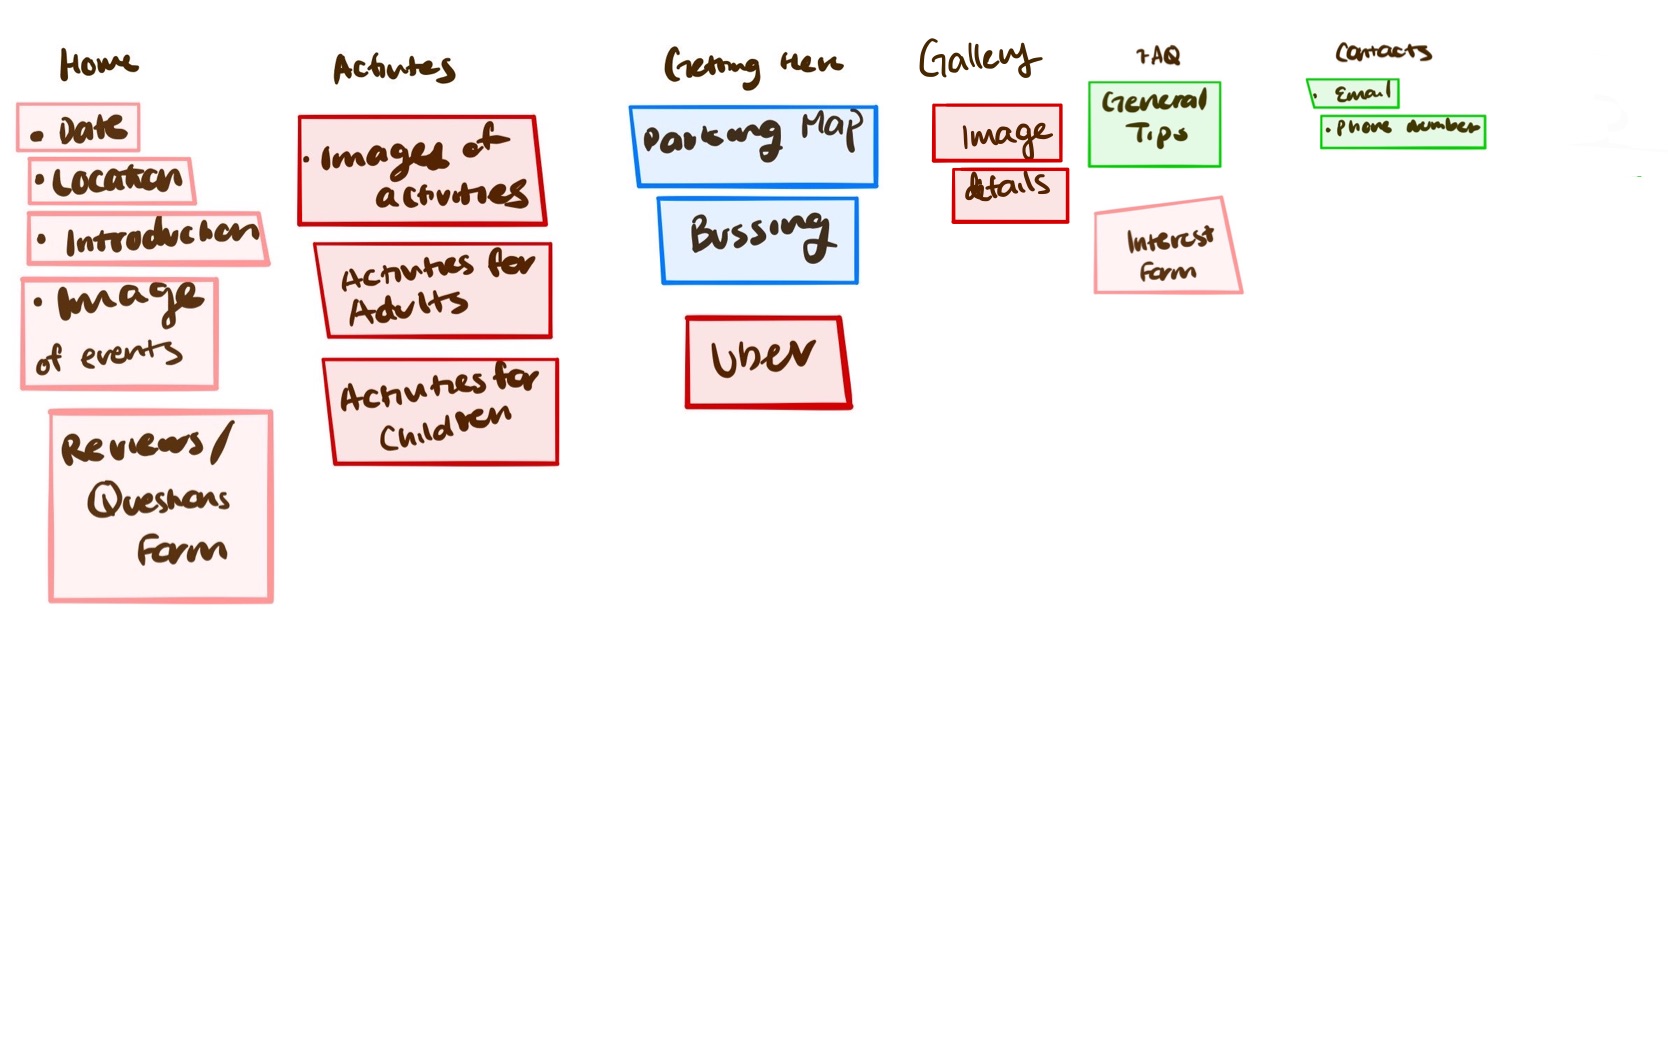 Home
• Date
• Location
• Introduction
• Image
of events
Reviews/
Questions
Form
Activites
• Images of
activities
Activities for
Adults
Activities for
Children
Getting Here
Parking Map
Bussing
Uber
Gallery
Image
details
FAQ
General
Tips
Interest
Form
Contacts
• Email
• Phone number